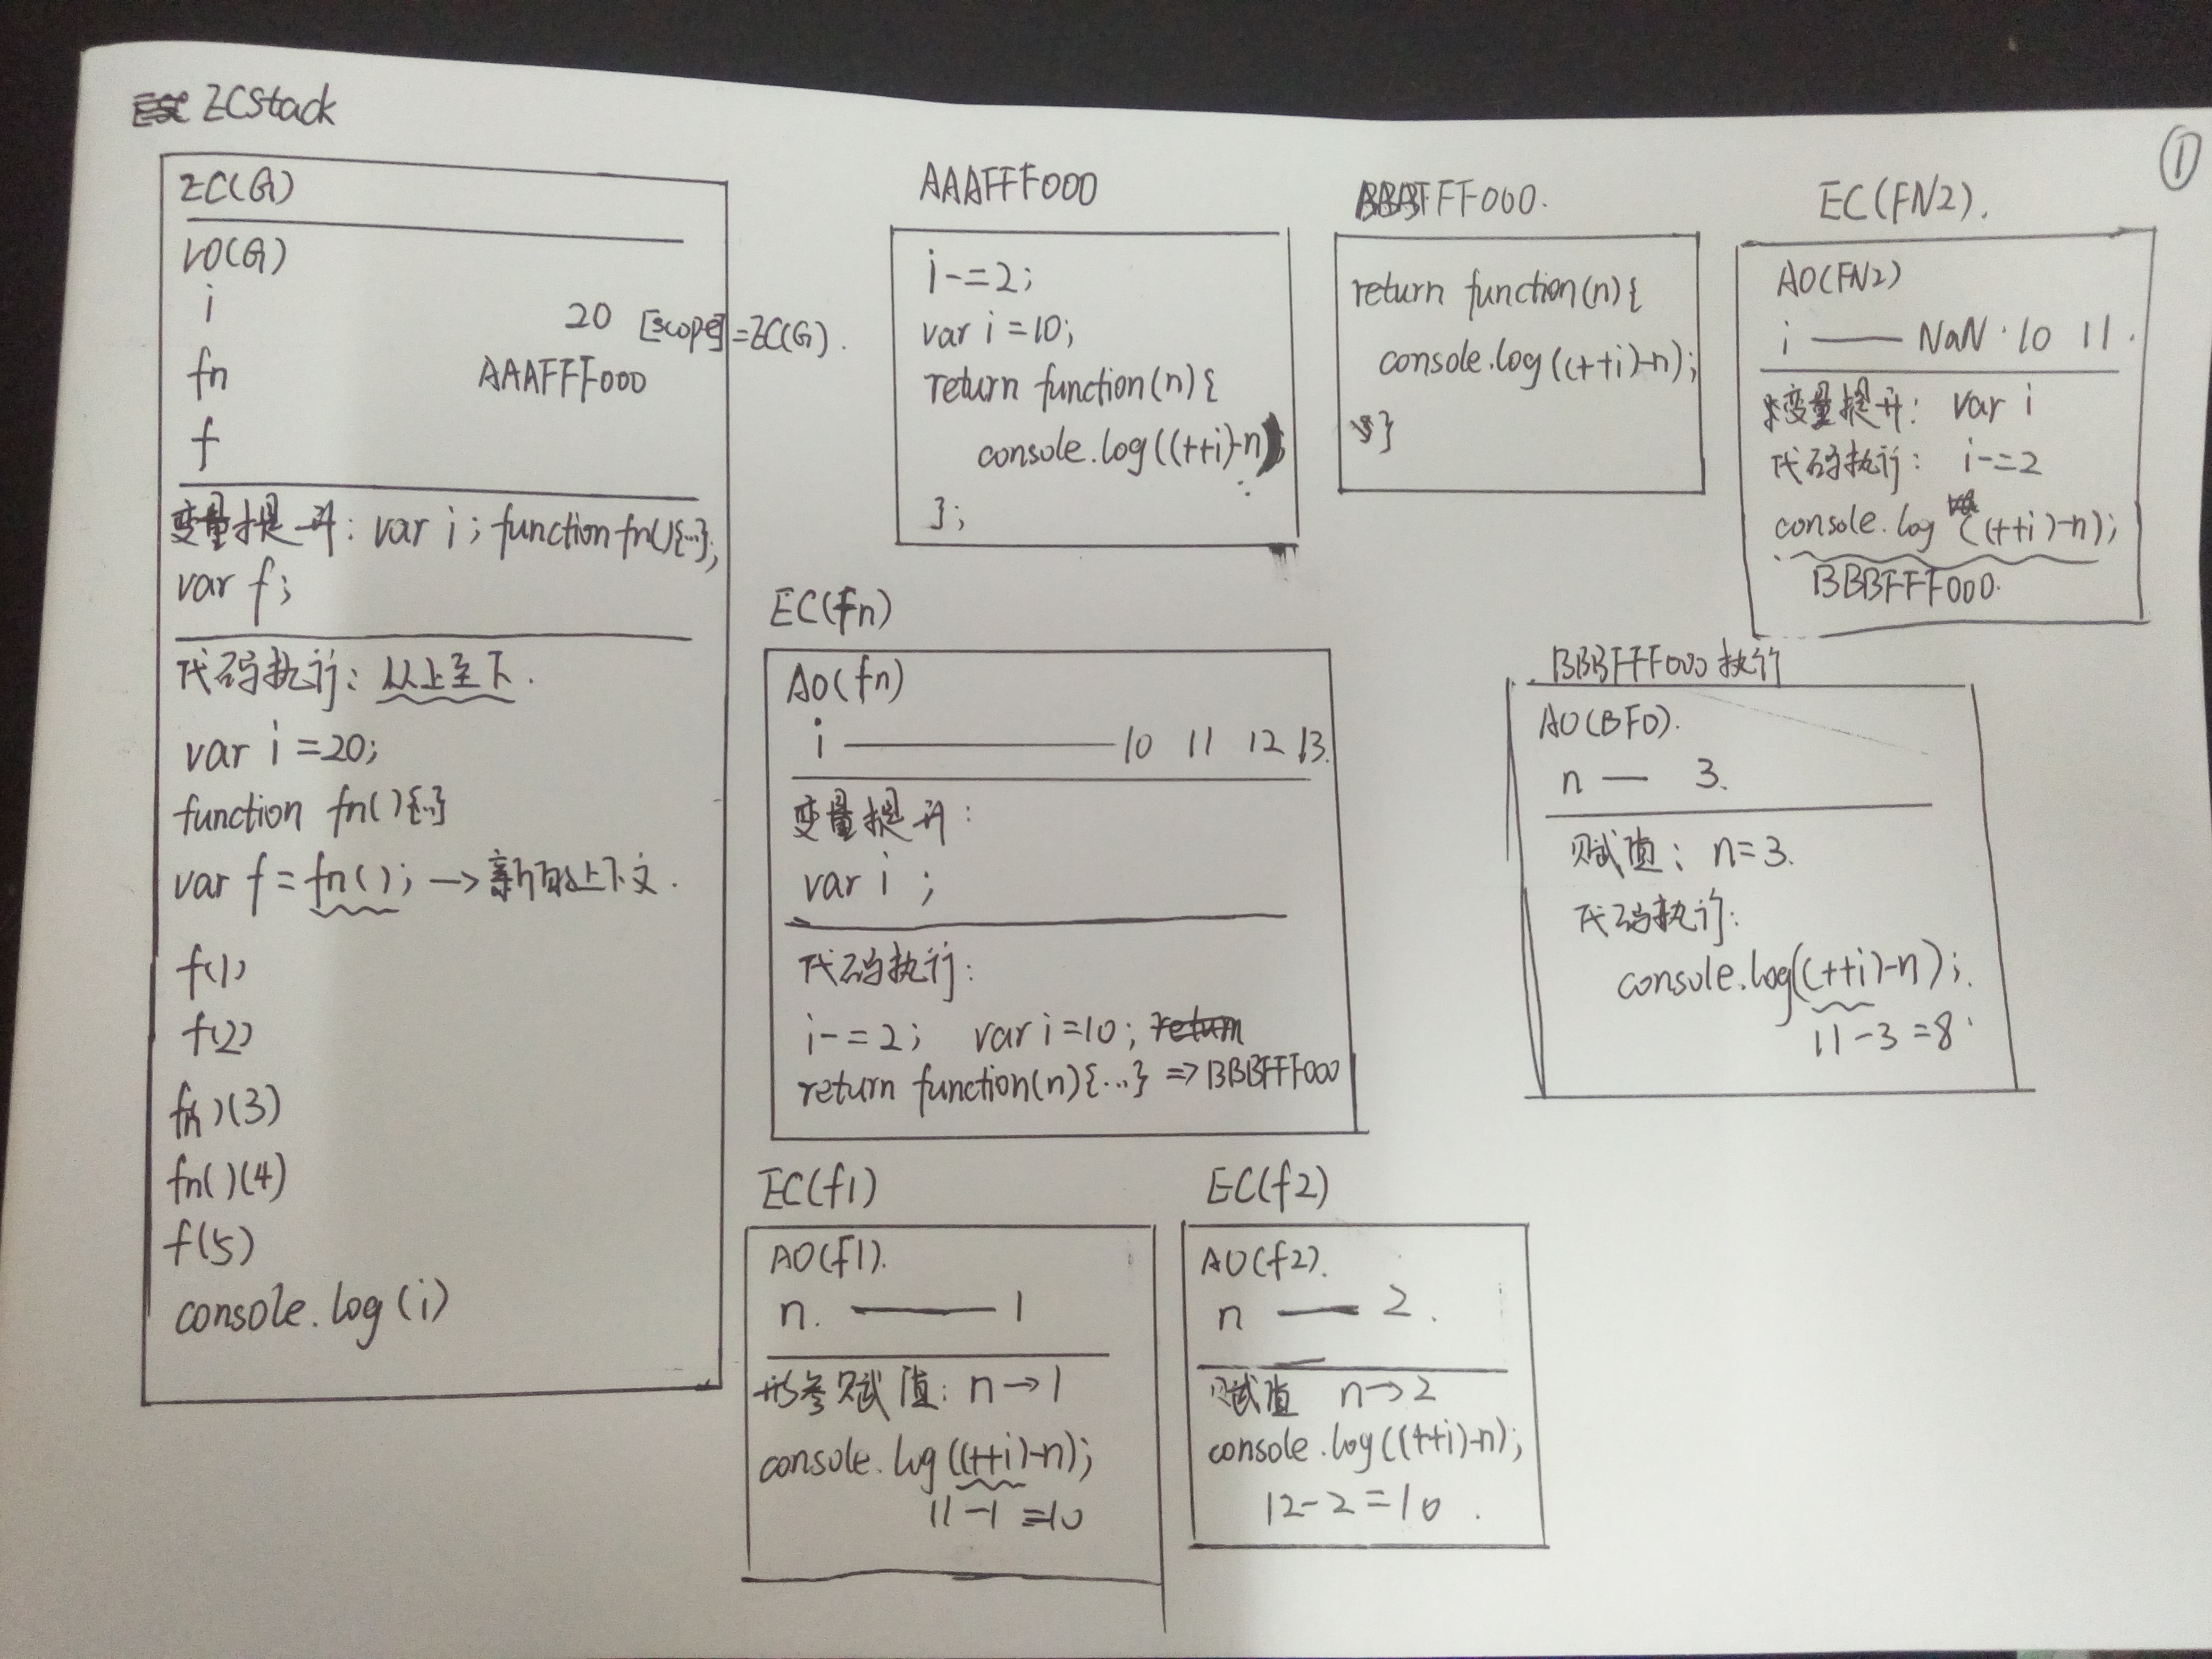 ZCStack
①
ZC(G)
VO(G)
i 20 [scope]=ZC(G).
fn AAAFFF000
f
变量提升: var i; function fn(){...};
var f;
代码执行: 从上至下.
var i=20;
function fn(){...}
var f=fn(); → 新的上下文.
f(1)
f(2)
fn()(3)
fn()(4)
f(5)
console.log(i)
AAAFFF000
i-=2;
var i=10;
return function(n){
console.log((++i)-n);
};
BBBFFF000.
return function(n){
console.log((++i)-n);
}
EC(FN2).
AO(FN2)
i —— NaN · 10 11.
变量提升: var i
代码执行: i-=2
console.log((++i)-n);
BBBFFF000.
EC(fn)
AO(fn)
i —— 10 11 12 13.
变量提升:
var i;
代码执行:
i-=2; var i=10;
return function(n){...} => BBBFFF000
BBBFFF000执行
AO(BF0).
n — 3.
赋值: n=3.
代码执行:
console.log((++i)-n);
11-3=8
EC(f1)
AO(f1).
n. —— 1
形参赋值: n→1
console.log((++i)-n);
11-1=10
EC(f2)
AO(f2).
n —— 2.
赋值 n→2
console.log((++i)-n);
12-2=10.